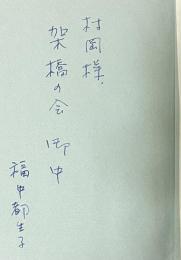 村岡様
架橋の会 御中
福中都生子